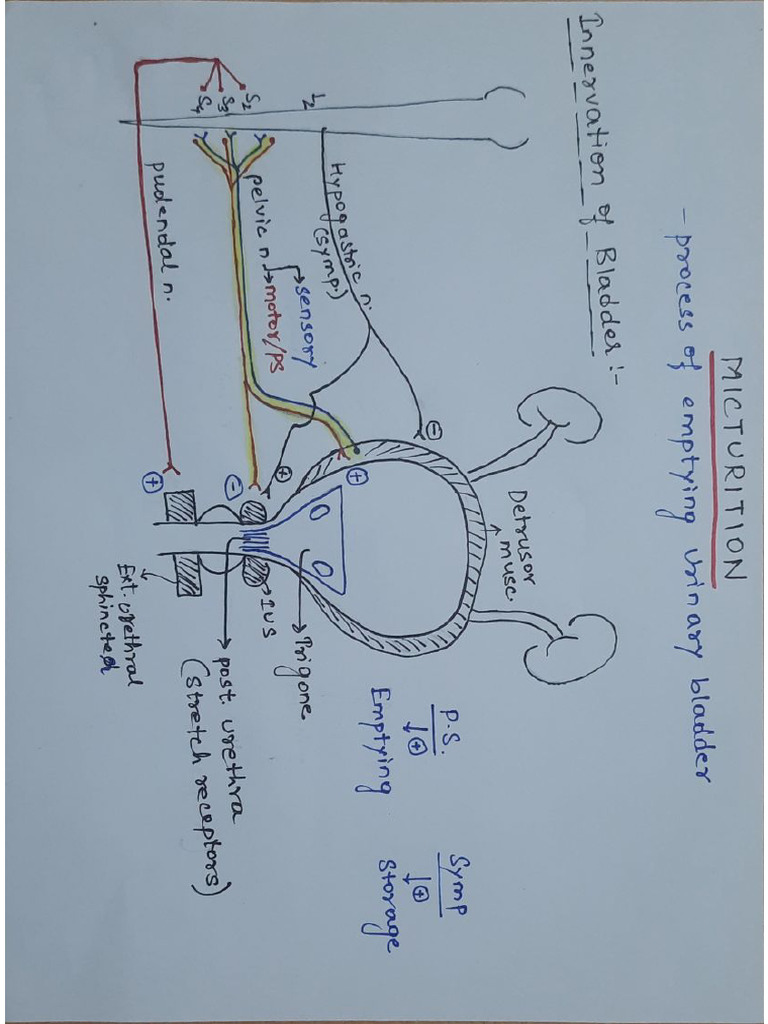 MICTURITION
- process of emptying urinary bladder
Innervation of Bladder :-
L2
S2
S3
S4
Hypogastric n.
(symp.)
pelvic n. → sensory
→ motor/PS
pudendal n.
Detrusor
musc.
⊖
⊕
⊕
⊖
⊕
Trigone
IUS
post. urethra
(stretch receptors)
Ext. urethral
sphincter
P.S.
↓⊕
Emptying
Symp
↓⊕
Storage